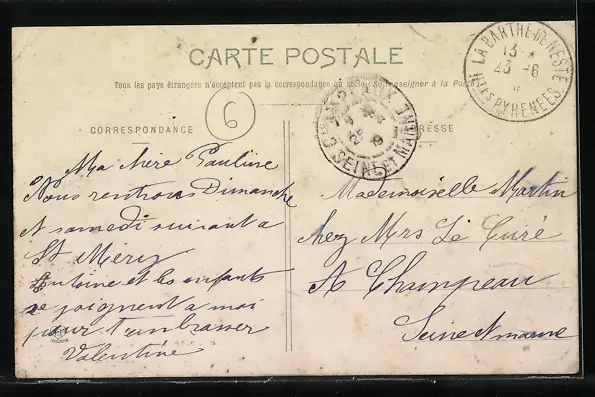 CARTE POSTALE
Tous les pays étrangers n'acceptent pas la correspondance au recto (Se renseigner à la Poste)
6
CORRESPONDANCE
ADRESSE
LA BARTHE-DE-NESTE
13
23 -6
HTES PYRENEES
SEINE ET MARNE
Ma chère Pauline
Nous rentrons Dimanche
et samedi suivant a
St Méry
Antoine et les enfants
se joignent a moi
pour t'embrasser
Valentine
Mademoiselle Martin
chez Mrs Le Curé
A Champeau
Seine et marne